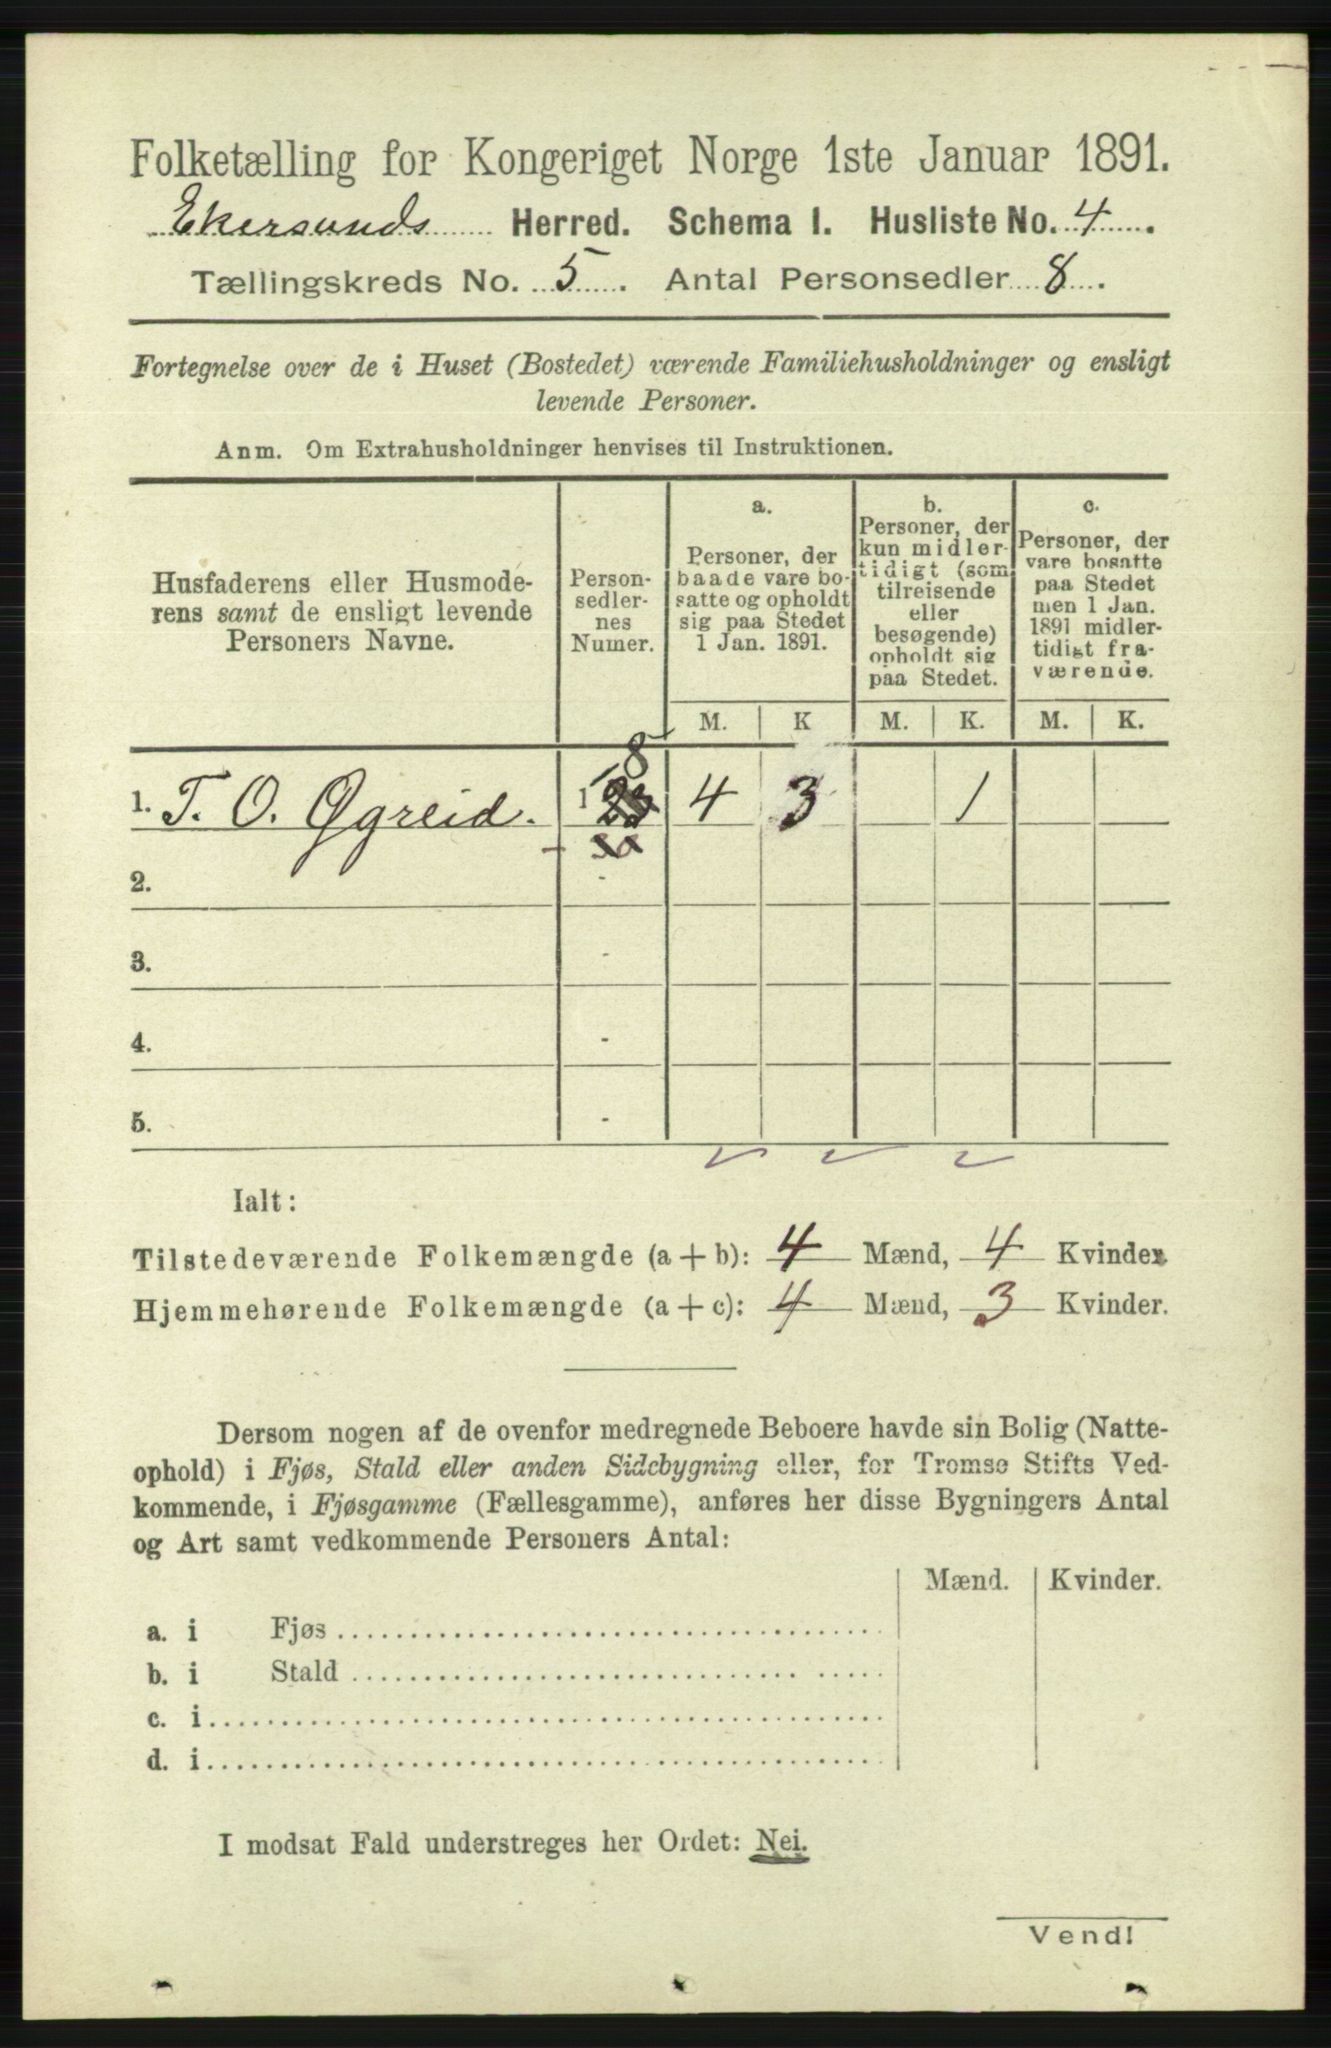 Folketælling for Kongeriget Norge 1ste Januar 1891.
Ekersunds Herred. Schema I. Husliste No. 4.
Tællingskreds No. 5. Antal Personsedler 8.
Fortegnelse over de i Huset (Bostedet) værende Familiehusholdninger og ensligt
levende Personer.
Anm. Om Extrahusholdninger henvises til Instruktionen.
Husfaderens eller Husmode-
rens samt de ensligt levende
Personers Navne.
Person-
sedler-
nes
Numer.
a.
Personer, der
baade vare bo-
satte og opholdt
sig paa Stedet
1 Jan. 1891.
b.
Personer, der
kun midler-
tidigt (som
tilreisende
eller
besøgende)
opholdt sig
paa Stedet.
c.
Personer, der
vare bosatte
paa Stedet
men 1 Jan.
1891 midler-
tidigt fra-
værende.
M. K M. K. M. K.
1. T. O. Øgreid. 1 8 4 3 1
2. -
3. -
4. -
5. -
Ialt:
Tilstedeværende Folkemængde (a + b): 4 Mænd, 4 Kvinder.
Hjemmehørende Folkemængde (a + c): 4 Mænd, 3 Kvinder.
Dersom nogen af de ovenfor medregnede Beboere havde sin Bolig (Natte-
ophold) i Fjøs, Stald eller anden Sidebygning eller, for Tromsø Stifts Ved-
kommende, i Fjøsgamme (Fællesgamme), anføres her disse Bygningers Antal
og Art samt vedkommende Personers Antal:
Mænd. Kvinder.
a. i Fjøs
b. i Stald
c. i
d. i
I modsat Fald understreges her Ordet: Nei.
Vend!